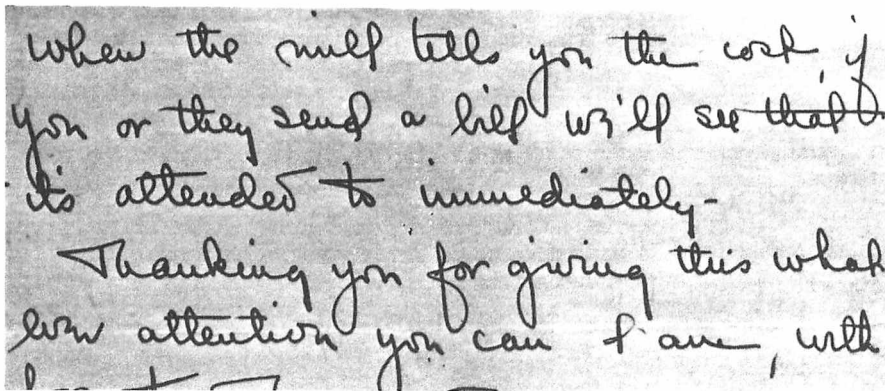 when the mill tells you the cost, if
you or they send a bill we'll see that
it's attended to immediately-
Thanking you for giving this what
ever attention you can I am, with